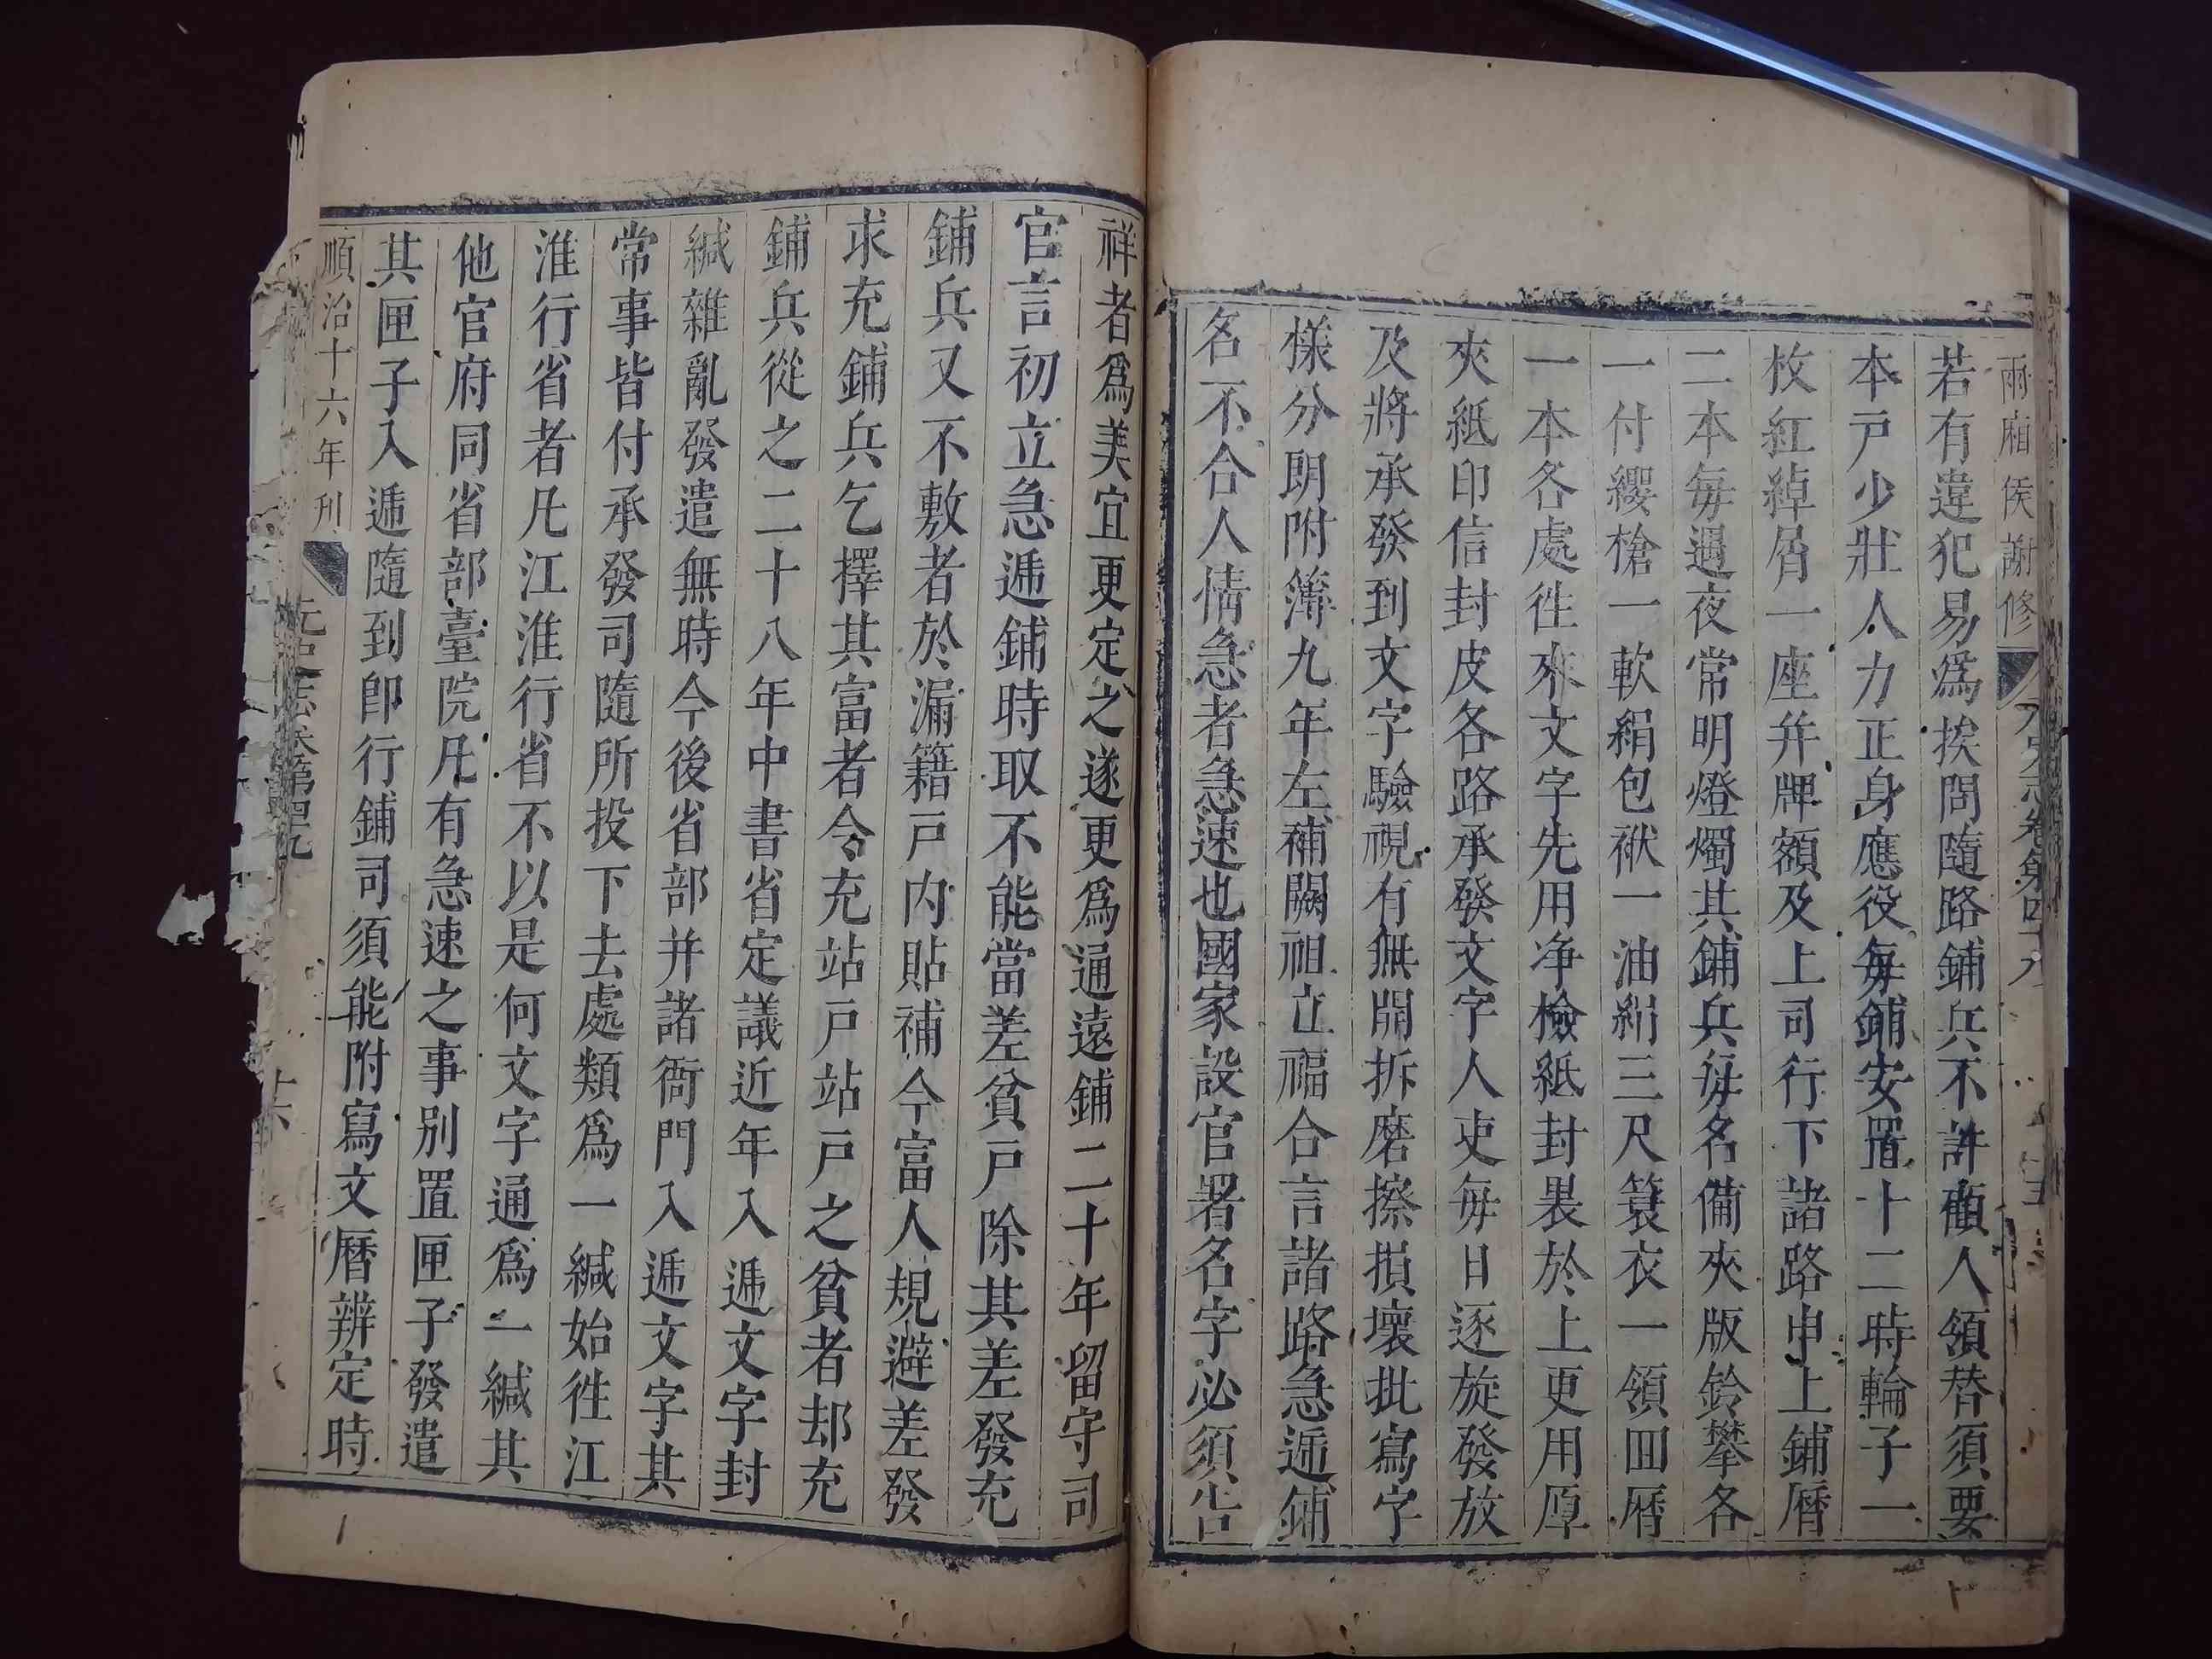 兩廂侯謝修
元史志卷第四十九
若有違犯易爲挨問隨路鋪兵不許顧人領替須要
本戸少壯人力正身應役每鋪安置十二時輪子一
枚紅綽屑一座并牌額及上司行下諸路申上鋪曆
二本每遇夜常明燈燭其鋪兵每名備夾版鈴攀各
一付纓槍一軟絹包袱一油絹三尺蓑衣一領回曆
一本各處徃來文字先用净檢紙封褁於上更用厚
夾紙印信封皮各路承發文字人吏每日逐旋發放
及將承發到文字驗視有無開拆磨擦損壞批寫字
樣分朗附簿九年左補闕祖立福合言諸路急遞鋪
名不合人情急者急速也國家設官署名字必須吿
祥者爲美宜更定之遂更爲通遠鋪二十年留守司
官言初立急遞鋪時取不能當差貧戸除其差發充
鋪兵又不敷者於漏籍戸内貼補今富人規避差發
求充鋪兵乞擇其富者令充站戸站戸之貧者却充
鋪兵從之二十八年中書省定議近年入遞文字封
緘雜亂發遣無時今後省部并諸衙門入遞文字其
常事皆付承發司隨所投下去處類爲一緘始徃江
淮行省者凡江淮行省不以是何文字通爲一緘其
他官府同省部臺院凡有急速之事别置匣子發遣
其匣子入遞隨到即行鋪司須能附寫文曆辨定時
順治十六年刊
元史志卷第四十九